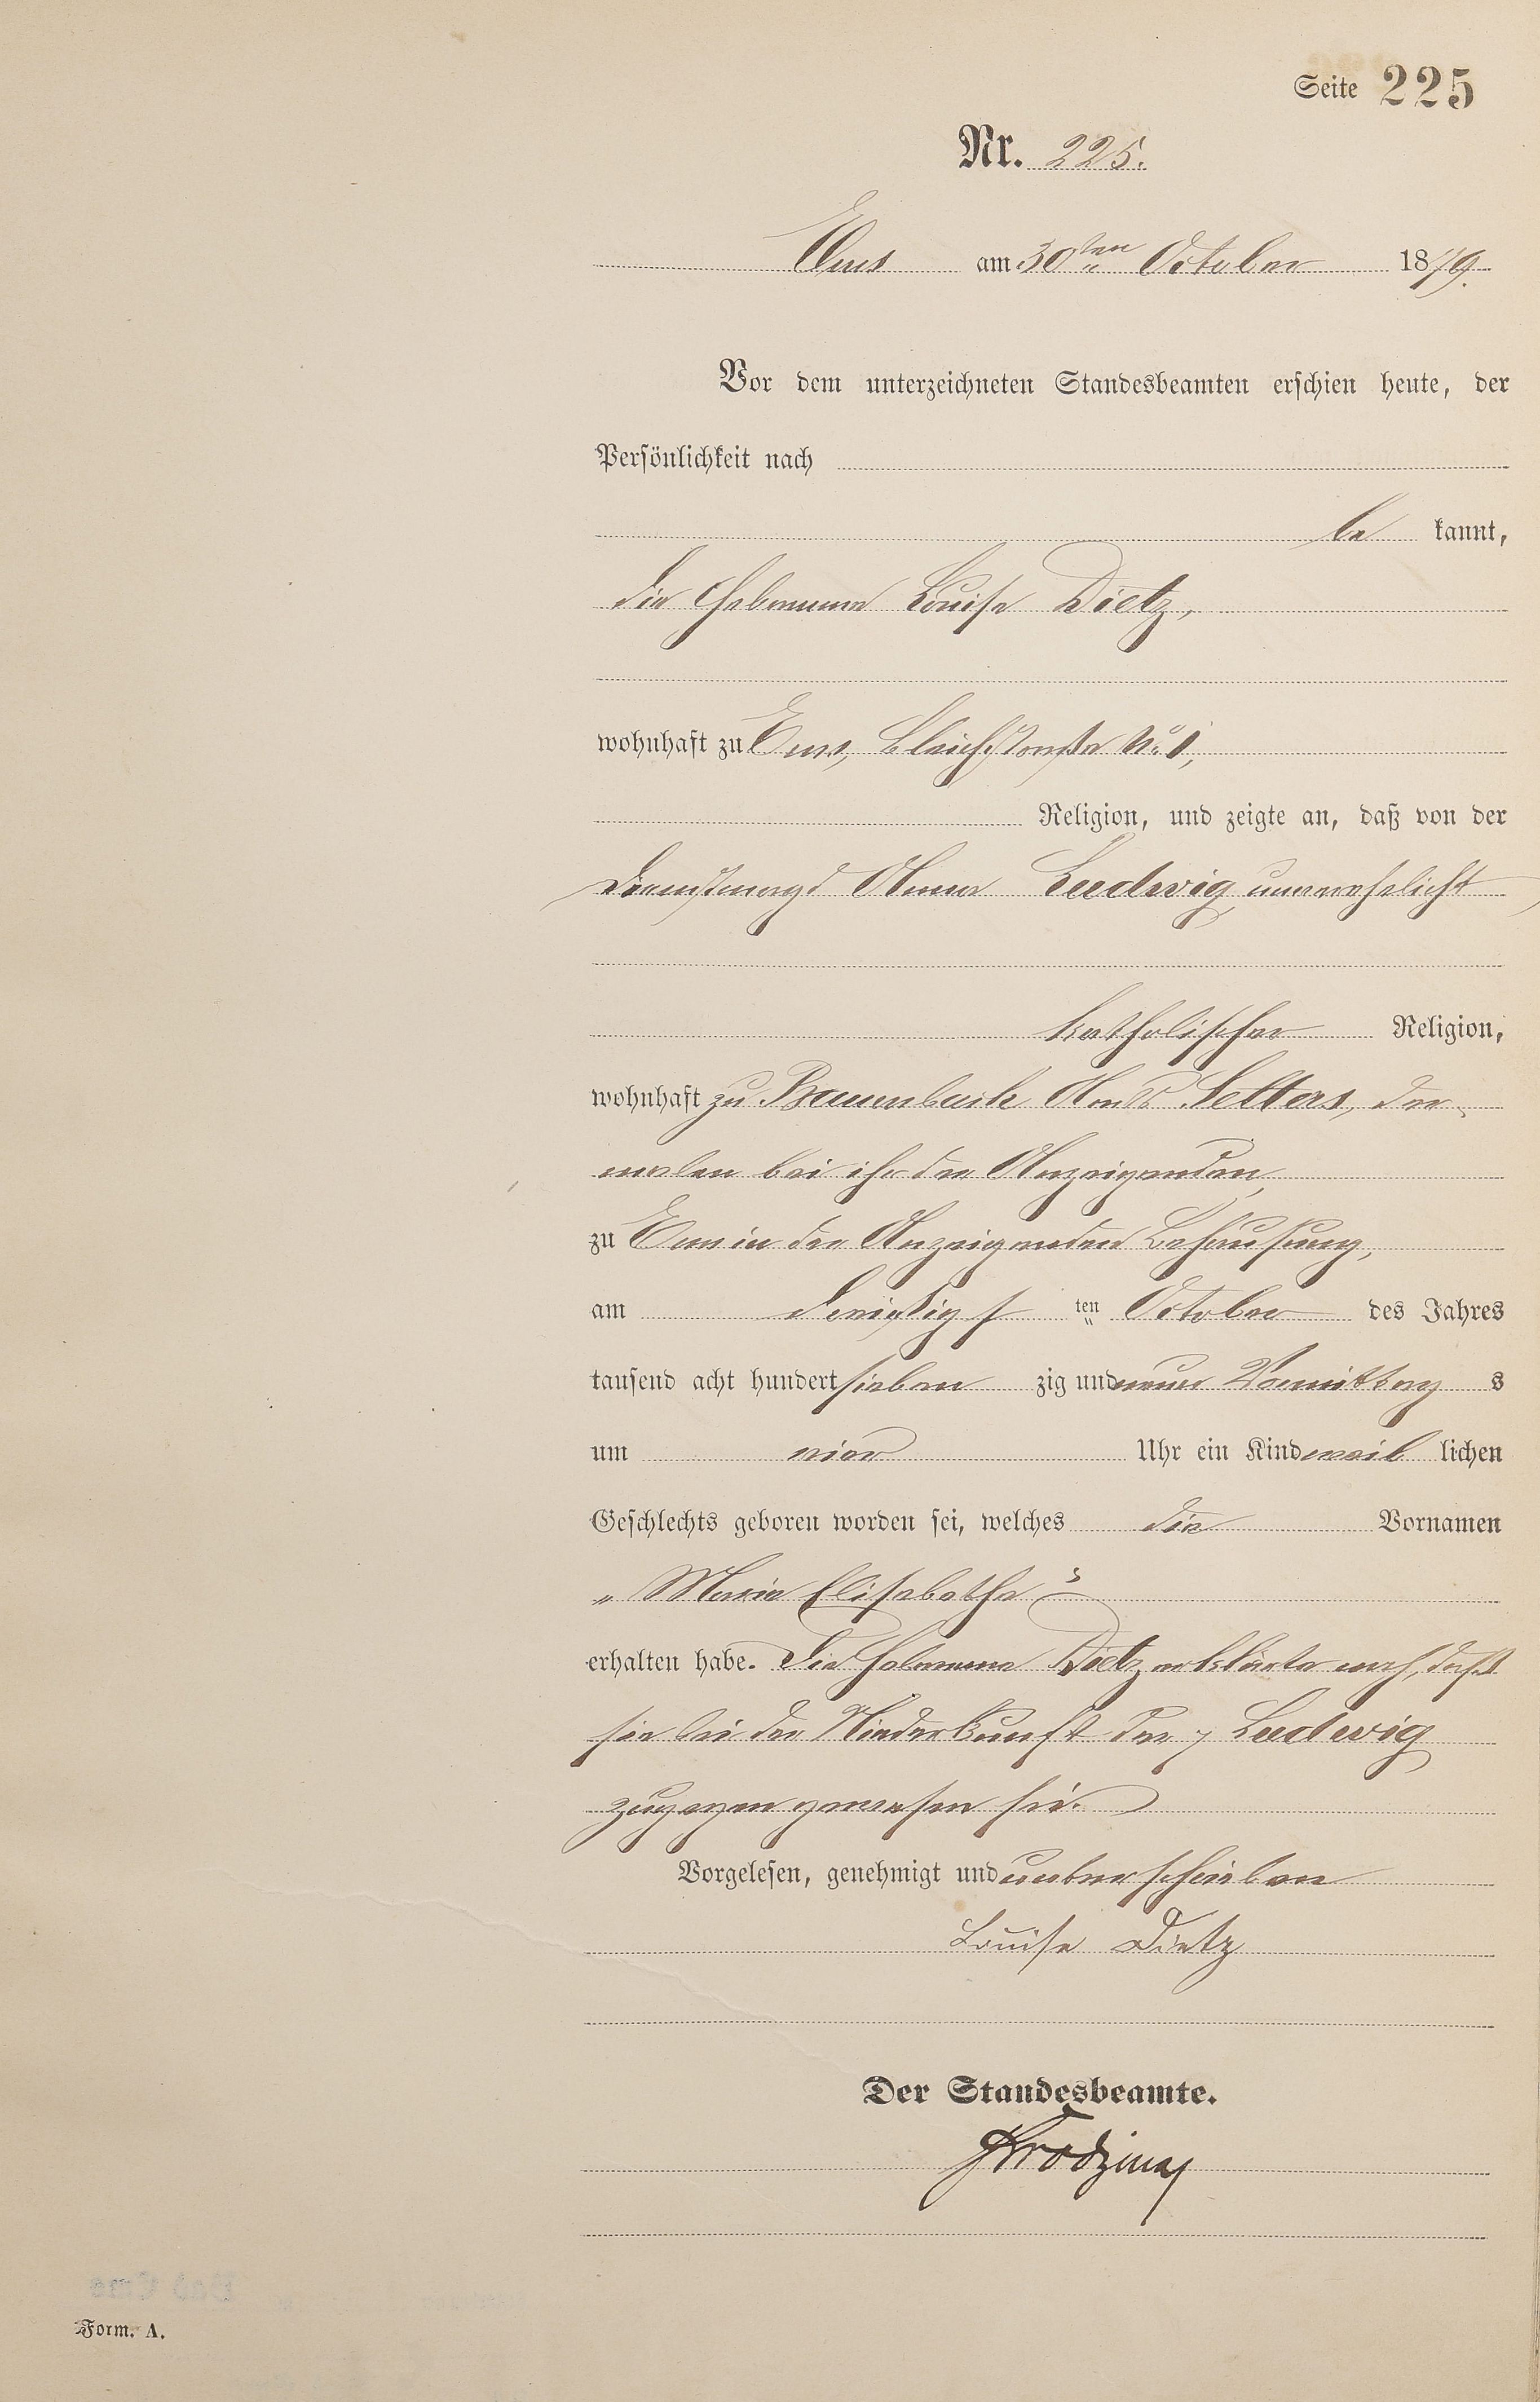 Seite 225
Nr. 225.
Ems am 30ten October 1879.
Vor dem unterzeichneten Standesbeamten erschien heute, der
Persönlichkeit nach
be kannt,
die Hebamme Louise Dietz,
wohnhaft zu Ems, Bleichstraße No 1,
Religion, und zeigte an, daß von der
Dienstmagd Anna Ludwig, unverehelicht,
katholischer Religion,
wohnhaft zu Baumbach Amts Selters, der-
malen bei ihr der Anzeigenden,
zu Ems in der Anzeigenden Behausung,
am dreißigs ten October des Jahres
tausend acht hundert sieben zig und neun Vormittag s
um vier Uhr ein Kind weib lichen
Geschlechts geboren worden sei, welches die Vornamen
„Maria Elisabetha“
erhalten habe. Die Hebamme Dietz erklärte noch, daß
sie bei der Niederkunft der Ludwig
zugegen gewesen sei.
Vorgelesen, genehmigt und unterschrieben
Louise Dietz
Der Standesbeamte.
Form. A.